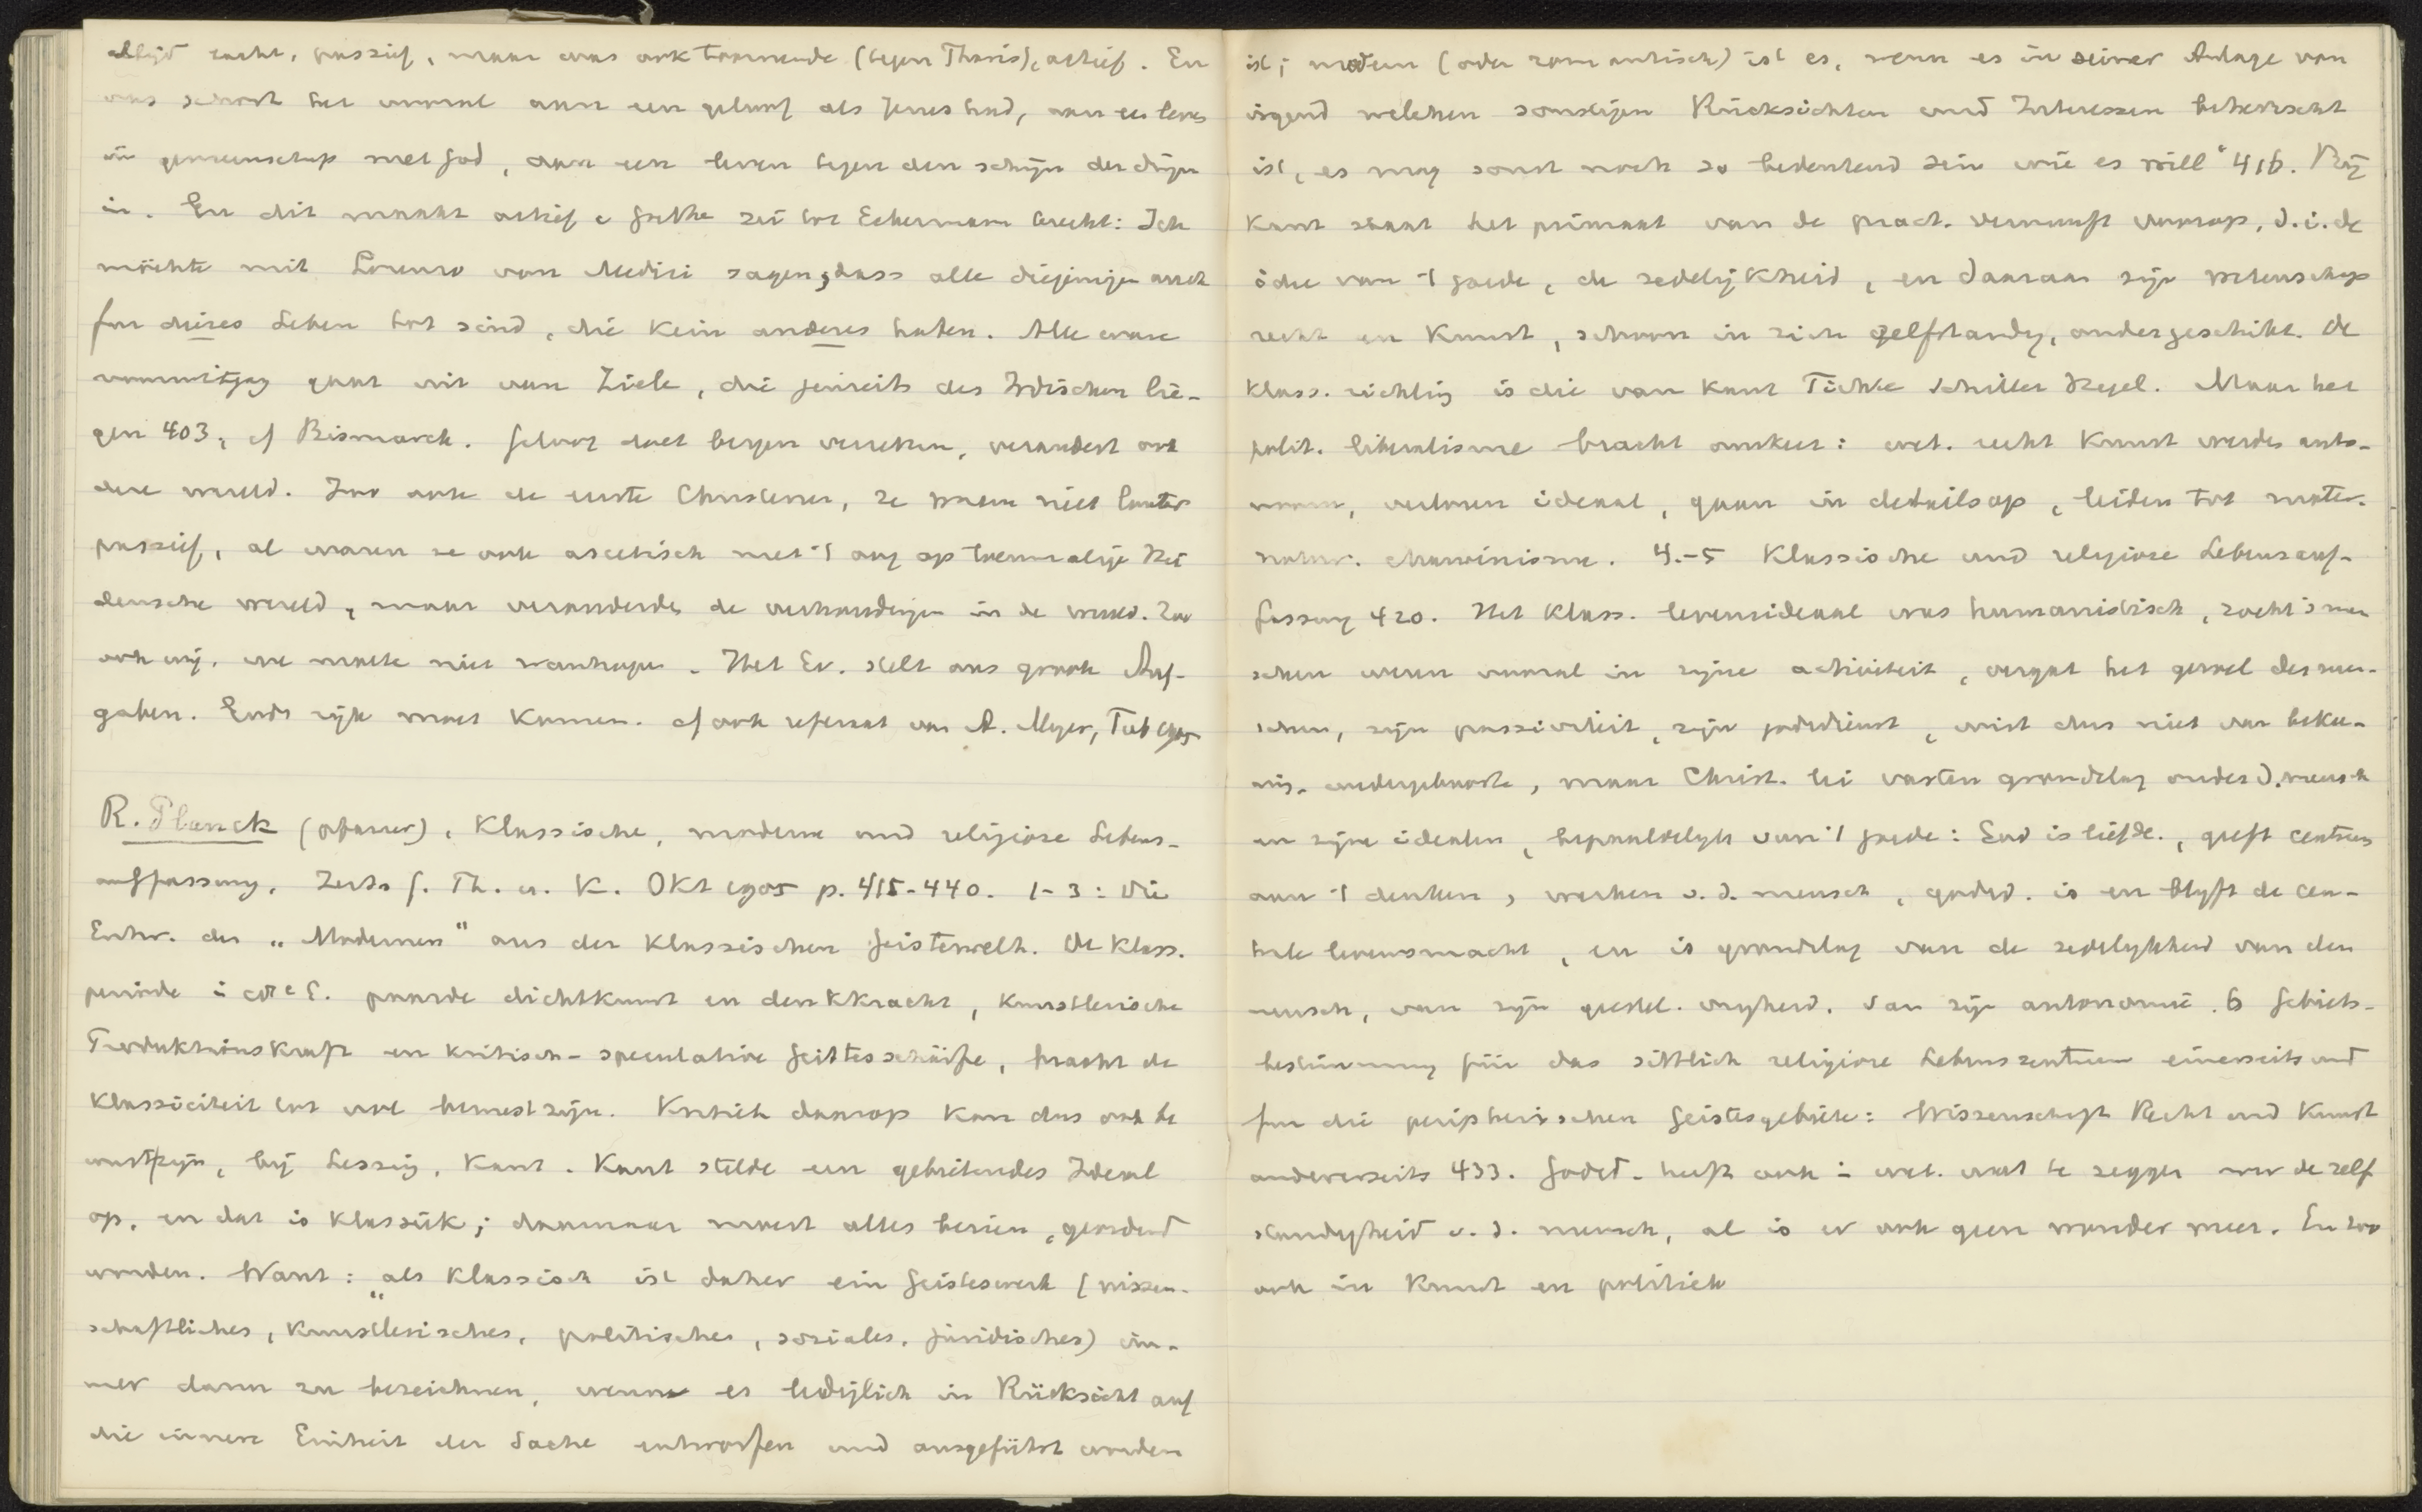 altijd zacht, passief, maar was ook toornende (tegen Thavis), actief. En
ons schort het vooral aan een geloof als Jezus had, aan een leven
in gemeenschap met God, aan een leven tegen den schijn der dingen
in. En dit maakt actief. Goethe zei tot Eckermann terecht: Ich
möchte mit Lorenzo von Medici sagen, dass alle diejenigen auch
für dieses Leben tot sind, die kein anderes haben. Alle ware
vooruitgang gaat uit van Ziele, die jenseits des Irdischen lie-
gen 403, cf Bismarck. Geloof doet bergen verzetten, verandert ook
deze wereld. Zoo ook de eerste Christenen, ze waren niet louter
passief, al waren ze ook ascetisch met 't oog op toenmalige Hei
densche wereld, maar veranderden de verhoudingen in de wereld. Zoo
ook wij. we moeten niet wanhopen. Het Ev. stelt ons groote Auf-
gaben. Gods rijk moet komen. cf ook referaat van A. Meyer, Tüb 1905
R. Planck (pfarrer), Klassische, moderne und religiöse Lebens-
auffassung. Zeits f. Th. u. K. Okt 1905 p. 415-440. 1-3: Die
Entw. der „Modernen" aus der klassischen Geisteswelt. De klass.
periode i 18e E. paarde dichtkunst en denkkracht, künstlerische
Produktionskraft en kritisch-speculative Geistesschärfe, bracht de
klassiciteit tot bewustzijn. Kritiek daarop kan dus ook be
wustzijn, bij Lessing, Kant. Kant stelde een gebietendes Ideal
op, en dat is klassiek; daarnaar moest alles bezien, geordend
worden. Want: „als klassisch ist daher ein Geisteswerk (wissen-
schaftliches, künstlerisches, politisches, soziales, juridisches) im-
mer dann zu bezeichnen, wenn es lediglich in Rücksicht auf
die innere Einheit der Sache entworfen und ausgeführt worden
ist; modern (oder romantisch) ist es, wenn es in seiner Anlage von
irgend welchen sonstigen Rücksichten und Interessen beherrscht
ist, es mag sonst noch so bedeutend sein wie es will" 416. Bij
Kant staat het primaat van de pract. vernunft voorop, d.i. de
idee van 't goede, de zedelijkheid, en daaraan zijn wetenschap
recht en kunst, schoon in zich zelfstandig, ondergeschikt. De
klass. richting is die van Kant Fichte Schiller Hegel. Maar het
polit. liberalisme bracht omkeer: wet. recht kunst werden auto-
noom, verloren ideaal, gaan in details op, leiden tot mater.
natur. chauvinisme. 4.-5 Klassische und religiöse Lebensauf-
fassung 420. Het klass. levensideaal was humanistisch, zocht 's men
schen wezen vooral in zijne activiteit, vergat het gevoel des men-
schen, zijn passiviteit, zijn godsdienst, wist dus niet van beke-
ring, wedergeboorte, maar Christ. lei vasten grondslag onder d. mensch
en zijne idealen, bepaaldelijk van 't goede: God is liefde, geeft centrum
aan 't denken, werken v. d. mensch, godsd. is en blijft de cen-
trale levensmacht, en is grondslag van de zedelijkheid van den
mensch, van zijn geestel. vrijheid, van zijn autonomie. 6 Gebiets-
bestimmung für das sittlich religiöse Lebenszentrum einerseits und
für die peripherischen Geistesgebiete: Wissenschaft Recht und Kunst
andererseits 433. Godsd. heeft ook i wet. wat te zeggen over de zelf
standigheid v. d. mensch, al is er ook geen wonder meer. En zoo
ook in kunst en politiek